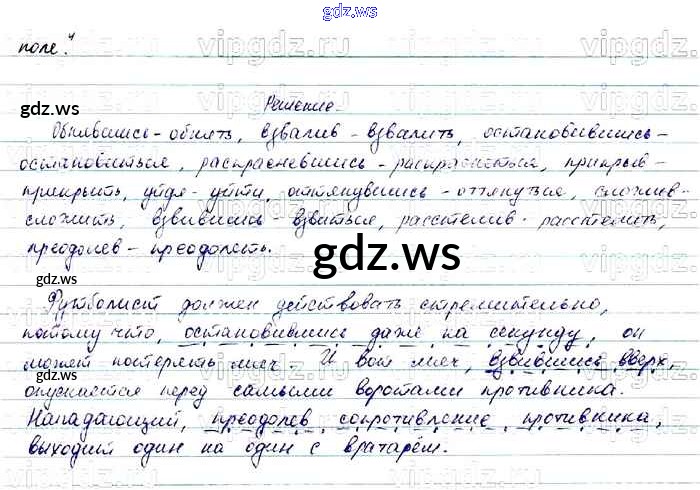 gdz.ws
поле".
Решение.
gdz.ws
Обнявшись - обнять, взвалив - взвалить, остановившись -
остановиться, раскрасневшись - раскраснеться, прикрыв -
прикрыть, уйдя - уйти, оттянувшись - оттянуться, сложив -
сложить, взвившись взвиться, расстелив - расстелить,
преодолев - преодолеть.
gdz.ws
gdz.ws
Футболист должен действовать стремительно,
потому что, остановившись даже на секунду, он
может потерять мяч. И вот мяч, взвившись вверх,
gdz.ws
опускается перед самыми воротами противника.
Нападающий, преодолев сопротивление противника,
выходит один на один с вратарём.
gdz.ws